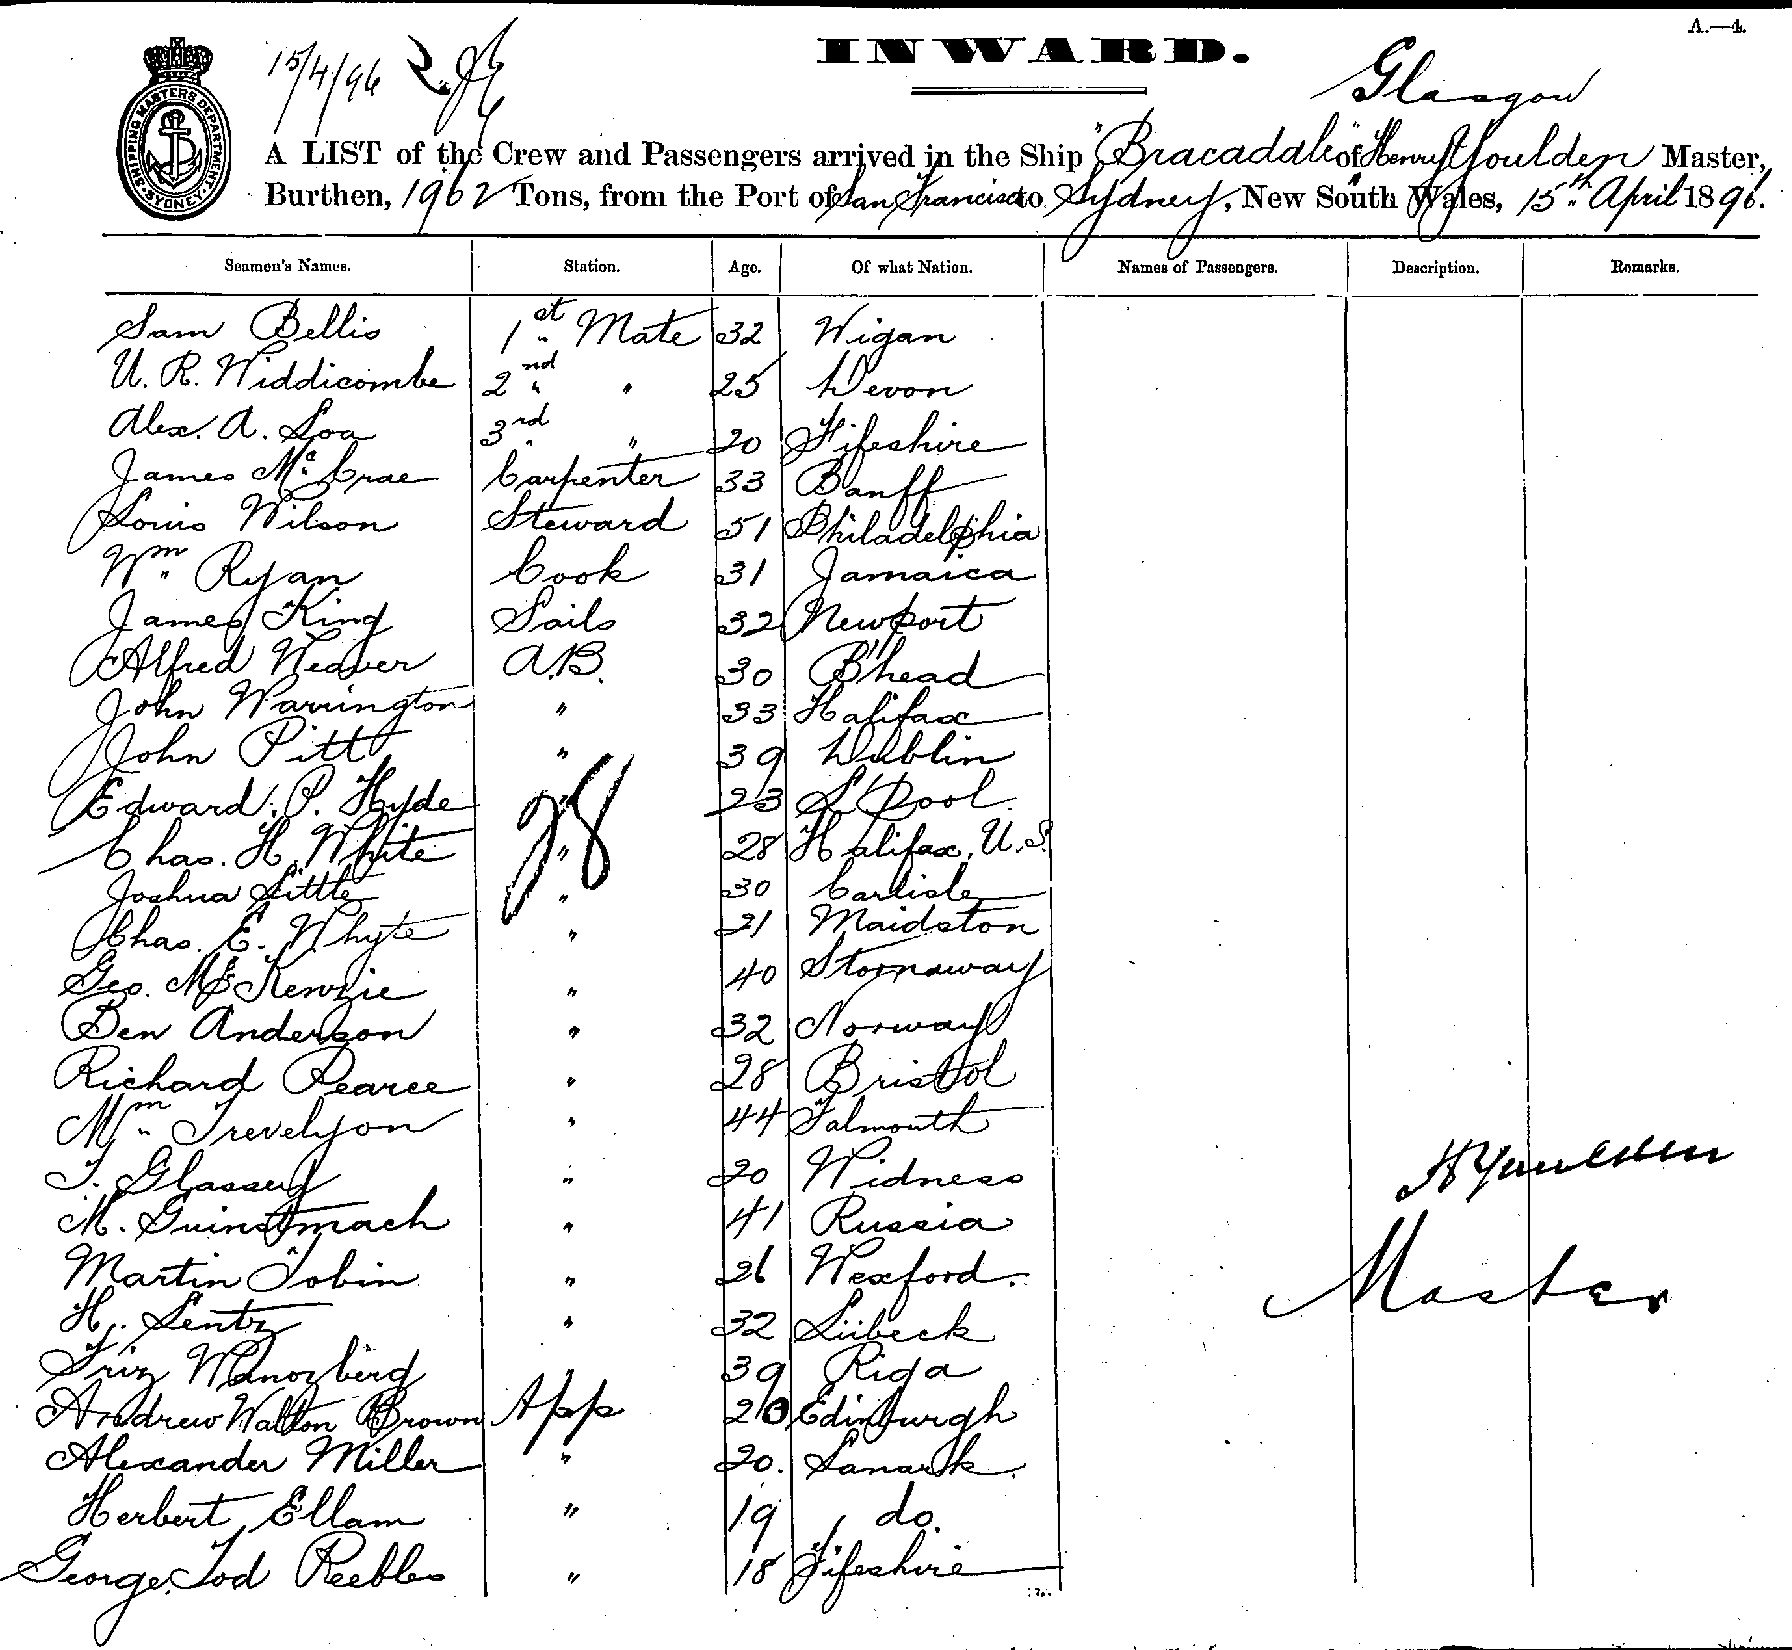 A.—4.
15/4/96
INWARD.
Glasgow
SHIPPING MASTERS DEPARTMENT SYDNEY
A LIST of the Crew and Passengers arrived in the Ship "Bracadale" of Henry Youlden Master,
Burthen, 1962 Tons, from the Port of San Francisco to Sydney, New South Wales, 15th April 1896.
Seamen's Names. Station. Age. Of what Nation. Names of Passengers. Description. Remarks.
Sam Bellis 1st Mate 32 Wigan
U. R. Widdicombe 2nd " 25 Devon
Alex. A. Loa 3rd " 20 Fifeshire
James McCrae Carpenter 33 Banff
Louis Wilson Steward 51 Philadelphia
Wm Ryan Cook 31 Jamaica
James King Sails 32 Newport
Alfred Weaver A.B. 30 B'head
John Warrington " 33 Halifax
John Pitt " 39 Dublin
Edward P. Hyde " 23 L'Pool
Chas. H. White " 28 Halifax, U.S.
28
Joshua Little " 30 Carlisle
Chas. E. Whyte " 21 Maidston
Geo. McKenzie " 40 Stornaway
Ben Anderson " 32 Norway
Richard Pearce " 28 Bristol
Wm Trevelyon " 44 Falmouth
T. Glassey " 20 Widness
M. " 41 Russia
Martin Tobin " 26 Wexford.
H. Lentz " 32 Lübeck
Friz " 39 Riga
Andrew Walton Brown App 20 Edinburgh
Alexander Miller " 20. Lanark.
Herbert Ellam " 19 do.
George Tod Peebles " 18 Fifeshire
H Youlden
Master